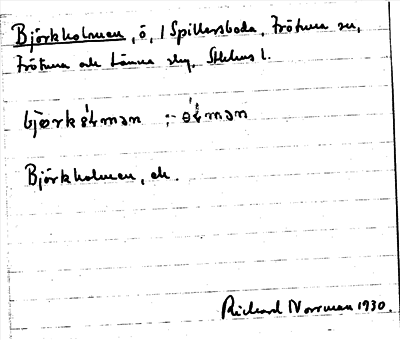 Björkholmen, ö, / Spillersboda, Frötuna sn,
Frötuna och Länna skg, Sthlms l.
Björkholmen, ek.
Richard Norrman 1930.